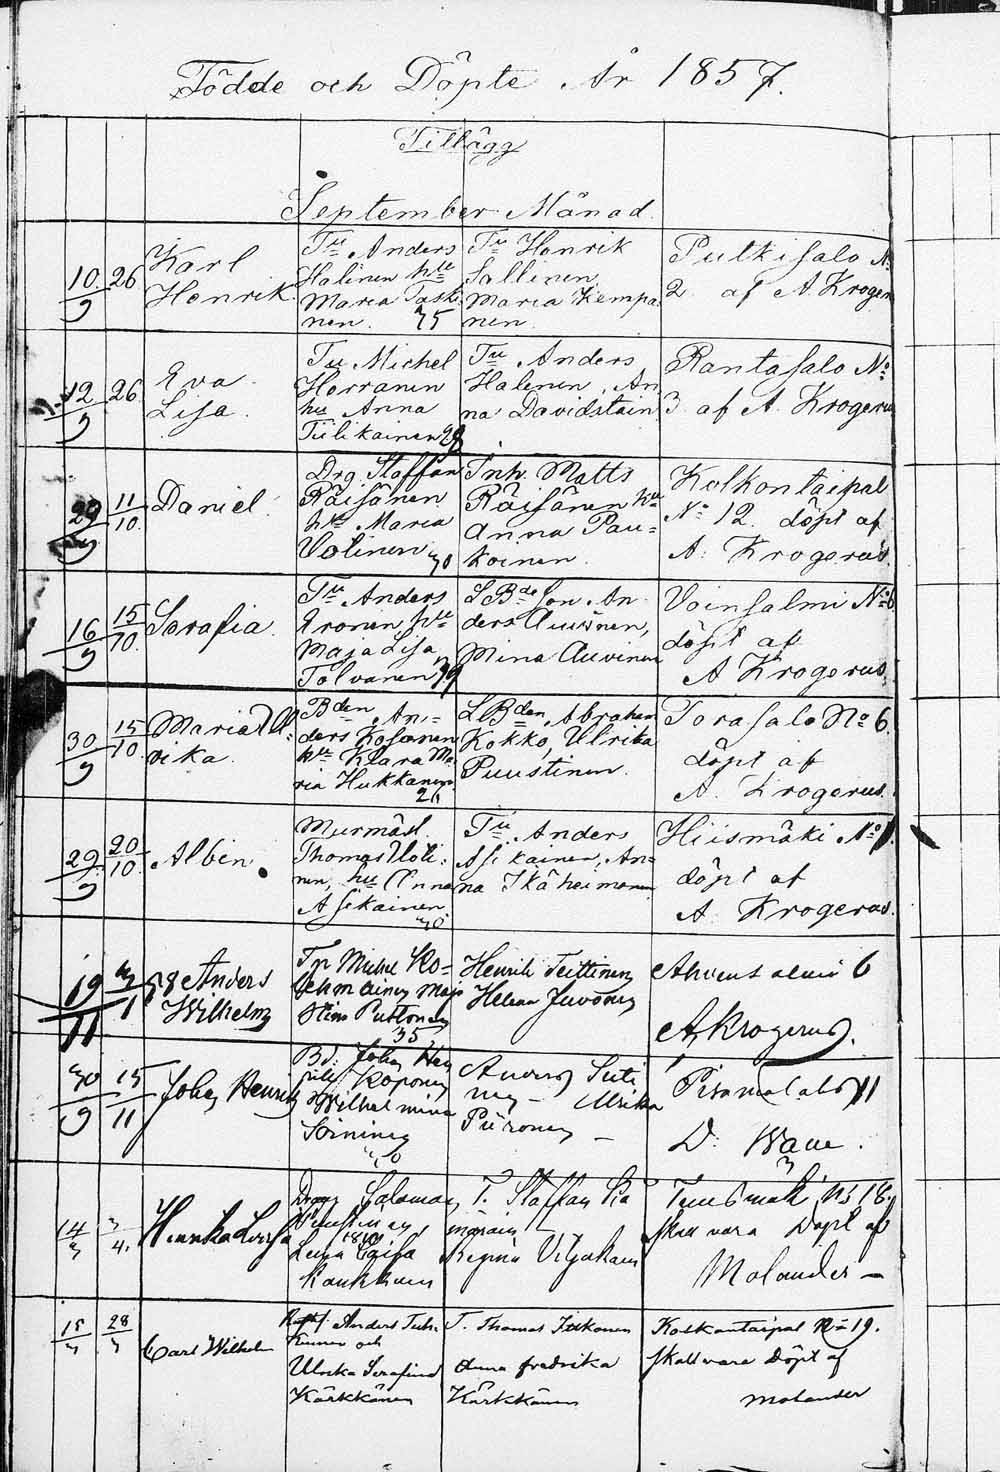 Födde och Döpte År 1857.
Tillägg
September Månad.
10/9 26 Karl Henrik
Tu Anders
Halinen hu
Maria Taski
nen. 25
Tu Henrik
Sallinen,
Maria Kempa
nen.
Pulkisalo No
2. af A. Krogerus
12/9 26 Eva
Lisa.
Tu Michel
Horranen
hu Anna
Tiilikainen 28
Tu Anders
Halenen, An
na Davidstain
Rantasalo No
3 af A. Krogerus
29 11/10 Daniel
Drg. Staffan
Räisänen
hu Maria
Volinen 30
Inh. Matts
Räisänen hu
Anna Pau=
konen.
Kolkontaipal
No 12. döpt af
A. Krogerus.
16/9 15/10 Serafia.
Tu Anders
Eronen hu
Maja Lisa
Tolvanen 39
LBde Son An
ders Auvinen,
Mina Auvinen
Voinsalmi No 6
döpt af
A Krogerus.
30/9 15/10 Maria Ul
rika.
Bden An=
ders Kosonen
hu Klara Ma
ria Hukkanen
LBden Abraham
Kokko, Ulrika
Puustinen.
Torasalo No 6.
döpt af
A. Krogerus.
29/9 20/10 Albin
Thomas Holi:
nen, hu Anna
Asikainen
30
Tu Anders
Asikainen, An=
na Ikäheimonen
Hiismäki No 1.
döpt af
A. Krogerus.
19/11 58 Anders
Wilhelm
Michel Ko=
35
Henrik Teittinen
Helena Juvonen
6
A. Krogerus.
30/9 15/11 Johan Henrik
Bd. Johan
Koponen
Wilhelmina
Soininen
30
Anders
nen - Ulrika
Piironen -
11
D. Wane.
14 4. Lovisa
Salomon
Lena Caisa
T. Staffan
Regina Viljakain
No 18.
skall vara Döpt af
Molander -
15 28 Carl Wilhelm
Anders
och
Ulrika Serafina
Kärkkänen
T. Thomas Itkonen
Anna fredrika
Kärkkänen
Kolkontaipal No 19.
skall vara Döpt af
Molander